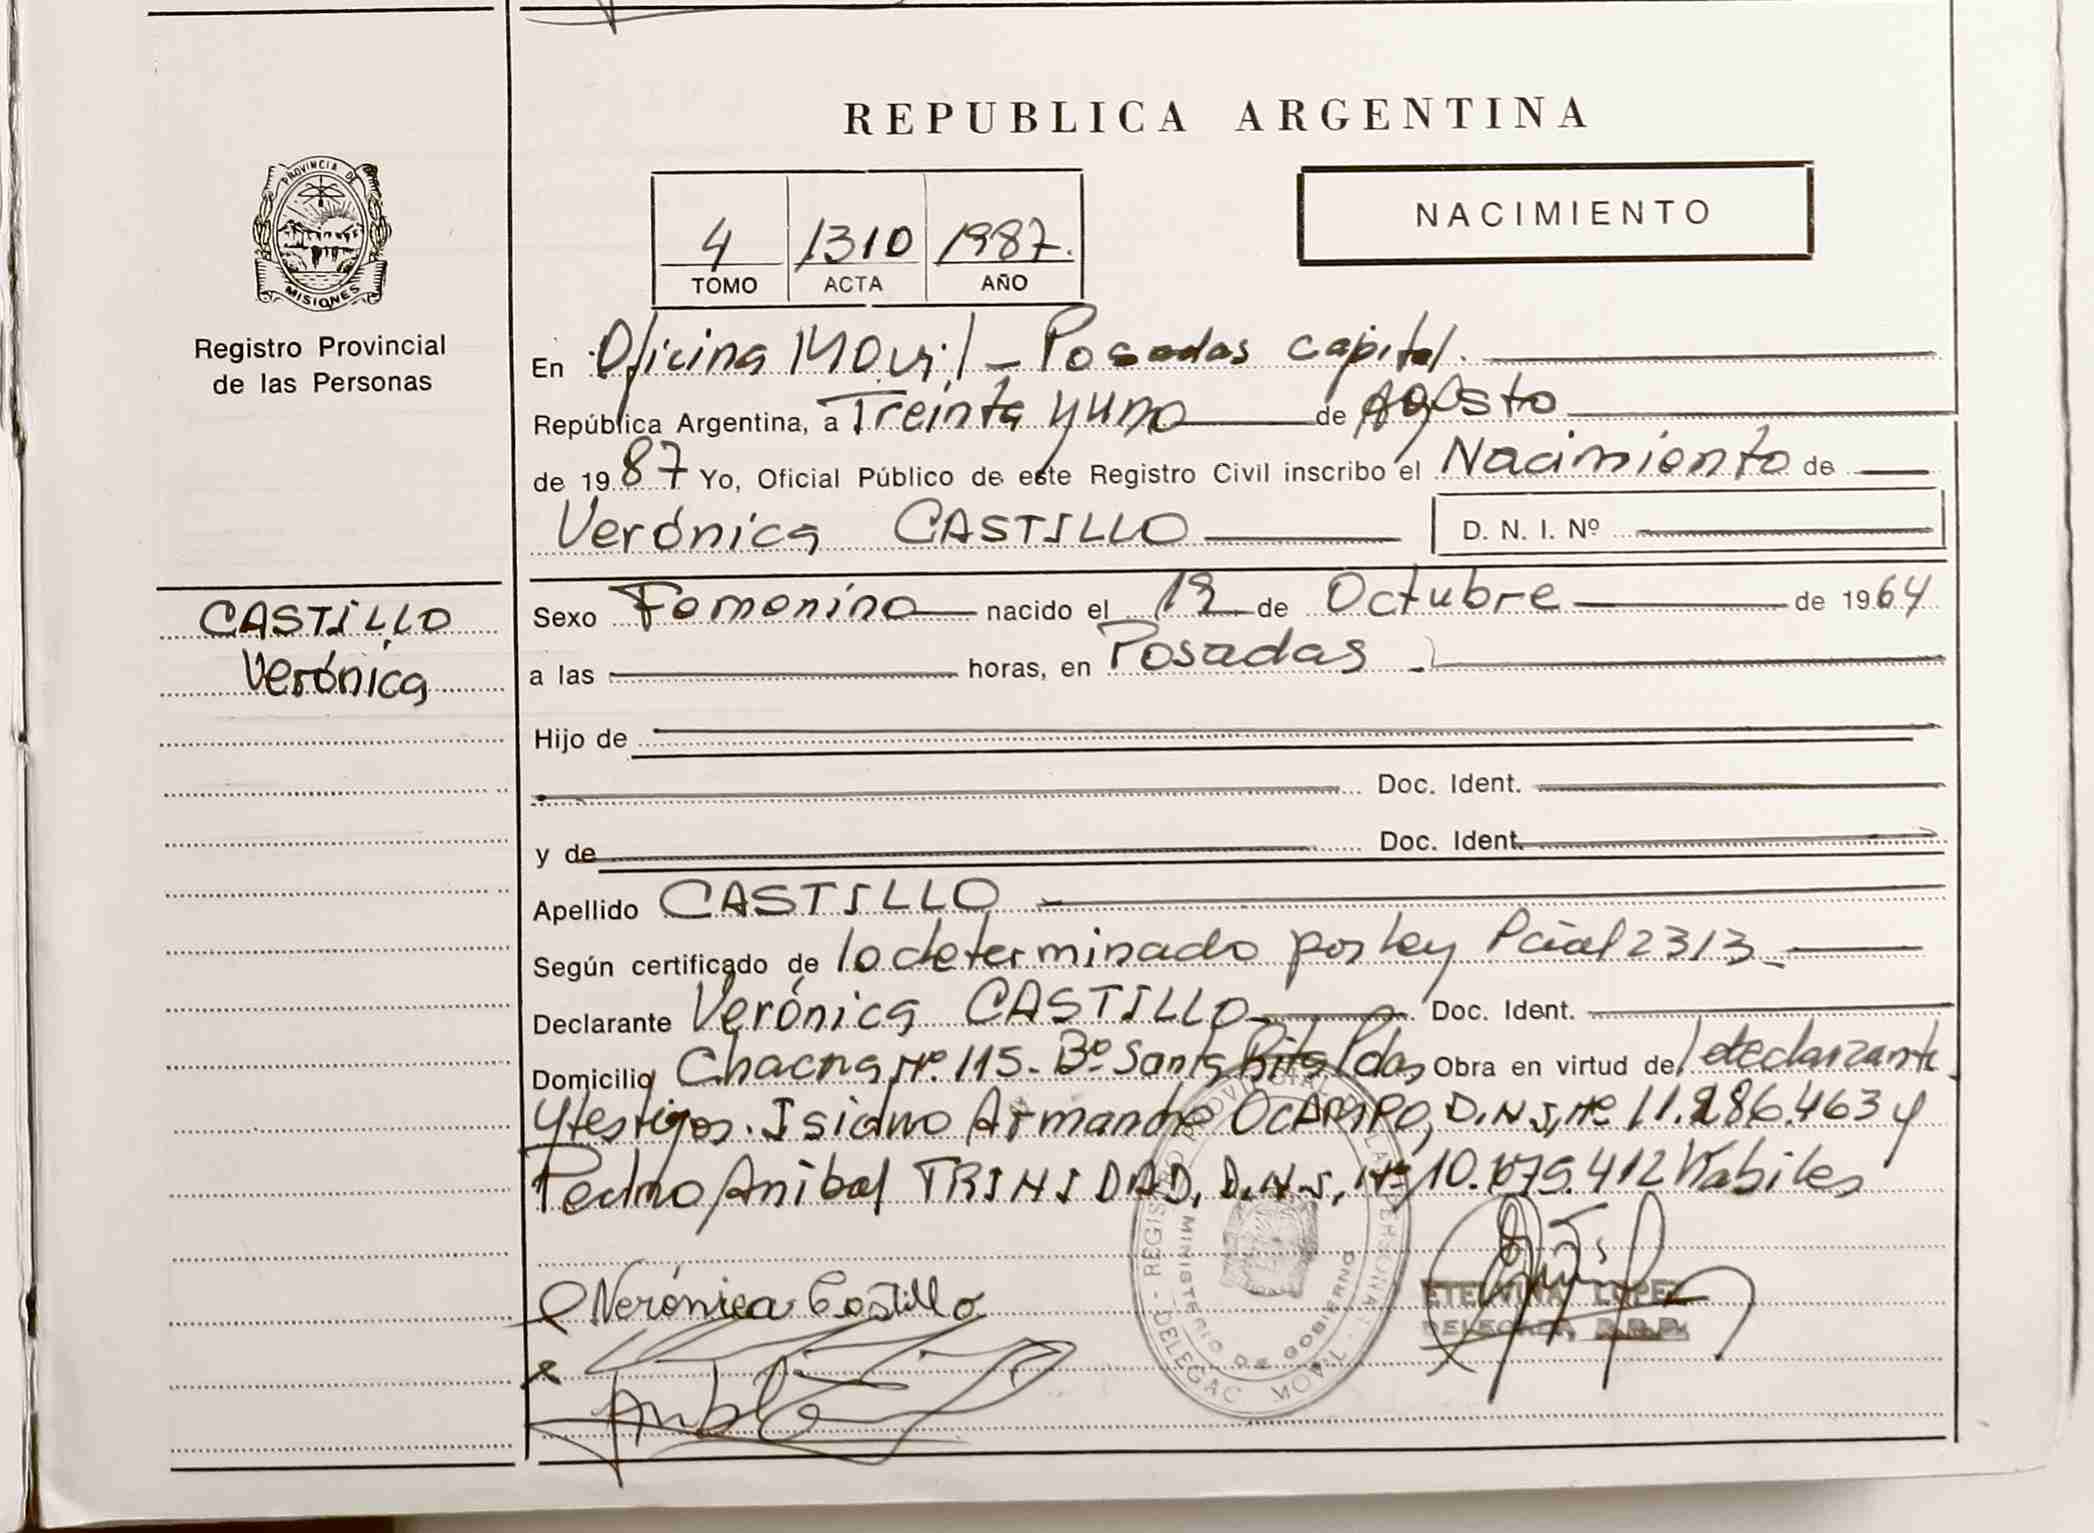 REPUBLICA ARGENTINA
PROVINCIA DE MISIONES
Registro Provincial
de las Personas
NACIMIENTO
4 1310 1987.
TOMO ACTA AÑO
En Oficina Movil - Posadas capital.
República Argentina, a Treinta y uno de Agosto
de 1987 Yo, Oficial Público de este Registro Civil inscribo el Nacimiento de
Verónica CASTILLO D. N. I. Nº
CASTILLO
Verónica
Sexo Femenino nacido el de Octubre de 1964
a las horas, en Posadas
Hijo de
Doc. Ident.
y de Doc. Ident.
Apellido CASTILLO
Según certificado de lo determinado por Ley Pcial 2313
Declarante Verónica CASTILLO Doc. Ident.
Domicilio Chacra Nº 115 - Bº Santa Rita Pdas Obra en virtud de
y testigos. Isidro Armando OCAMPO, D.N.I, Nº y
Pedro Anibal TRINIDAD, D.N.I, Nº hábiles
Verónica Castillo
ETELVINA LOPEZ
DELEGADA
REGISTRO PROVINCIAL DE LAS PERSONAS - DELEGAC MOVIL
MINISTERIO DE GOBIERNO